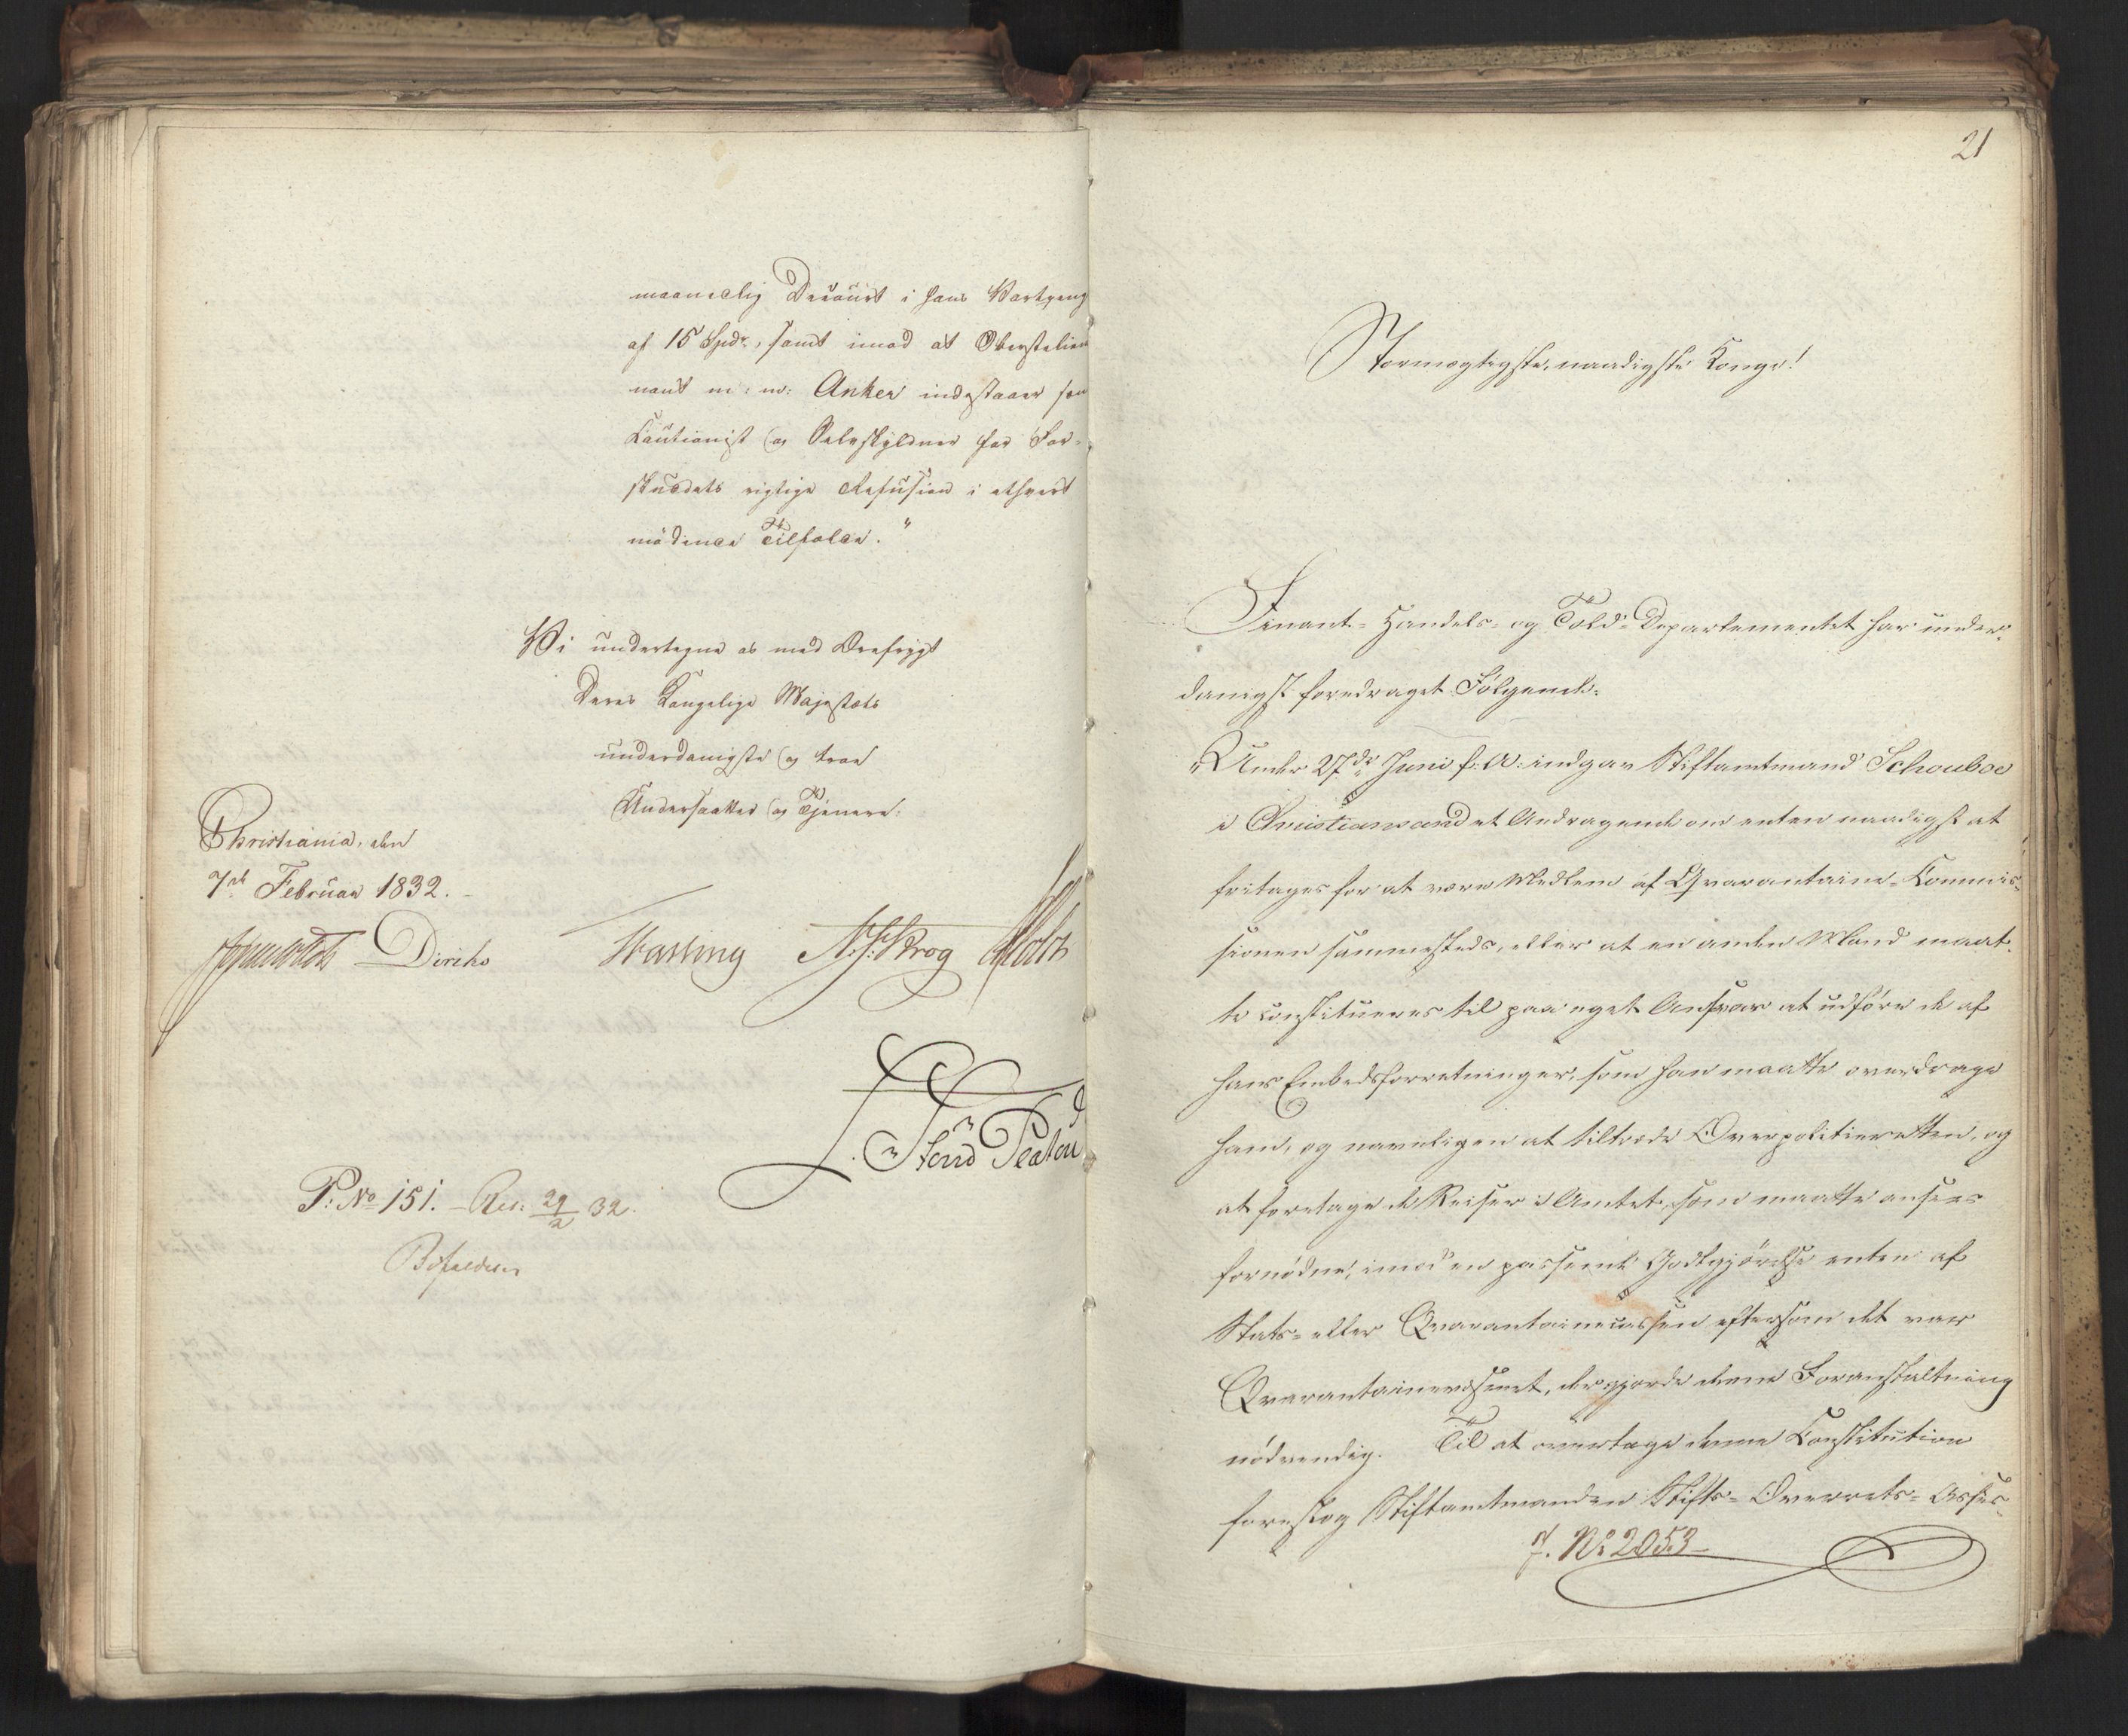 maanedlig Decourt i hans Vartpeng
af 15 Spdr., samt imod at Oberstelieu
nant m: m: Anker indestaaer som
Cautionist og Selvskyldner for For-
skuddets rigtige Refusion i ethvert
mødende Tilfælde."
Vi undertegne os med Ærefrygt
Deres Kongelige Majestæts
underdanigste og troe
Undersaatter og Tjenere.
Christiania, den
7de Februar 1832.
Diriks Fasting N. J. Krog Holst
P. No 151. - Res. 29/2 32.
Bifaldes
21
Stormægtigste, naadigste Konge!
Finants- Handels- og Told-Departementet har under-
danigst foredraget Følgende:
"Under 27de Juni f: A: indgav Stiftamtmand Schouboe
i Christiansand et Andragende om enten naadigst at
fritages for at være Medlem af Qvarantaine-Commis-
sionen sammesteds, eller at en anden Mand maat-
te constitueres til paa eget Ansvar at udføre de af
hans Embedsforretninger, som han maatte overdrage
ham, og navnligen at tiltræde Overpolitieretten, og
at foretage de Reiser i Amtet, som maatte ansees
fornødne, imod en passende Godtgjørelse enten af
Stats- eller Qvarantainecassen eftersom det var
Qvarantainevæsenet, der gjorde denne Foranstaltning
nødvendig. Til at overtage denne Constitution
foreslog Stiftamtmanden Stifts-Overrets-Asses-
7. No 2053